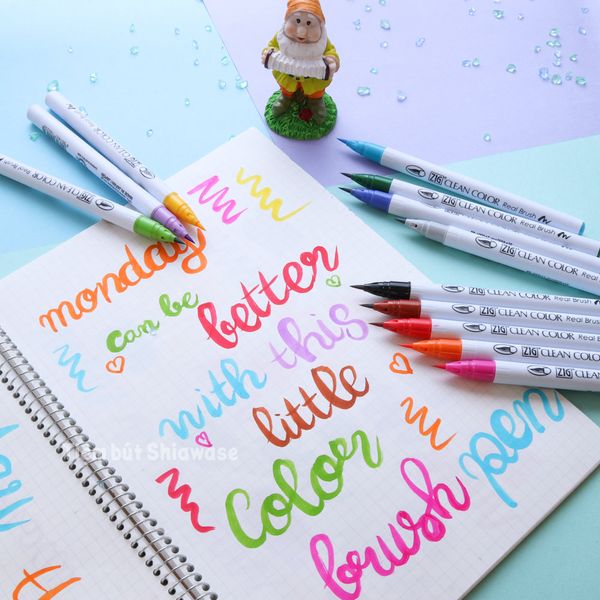 monday
can be better
with this
little
color
brush pen
ZIG CLEAN COLOR Real Brush
ZIG CLEAN COLOR Real Brush
CLEAN COLOR Real Brush
ZIG CLEAN COLOR
ZIG CLEAN COLOR Real Brush
ZIG CLEAN COLOR Real Brush
ZIG CLEAN COLOR Real Brush
ZIG CLEAN COLOR Real Brush
ZIG CLEAN COLOR
ZIG CLEAN COLOR
bút Shiawase